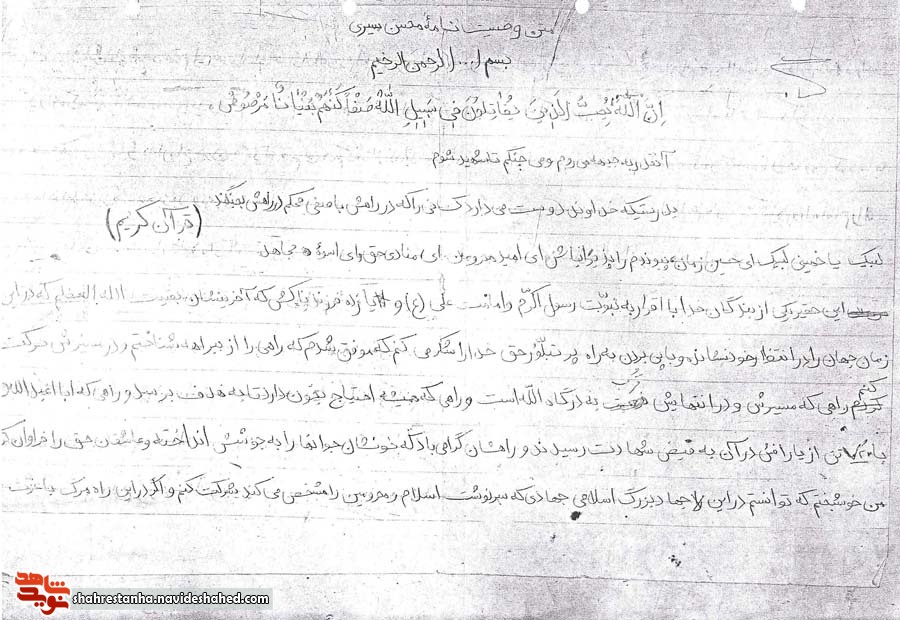 متن وصیت نامهٔ محسن بصیری
بسم ا... الرحمن الرحیم
اِنَّ اللّهَ یُحِبُّ الَذینَ یُقاتِلونَ فی سَبیلِ اللّهِ صَفّاً کَاَنَّهُم بُنْیانٌ مَرْصُوصٌ.
آنقدر به جبهه می روم و می جنگم تا شهید شوم
بدرستیکه خداوند دوست می دارد کسانی را که در راهش با صفی محکم در راهش بجنگند. (قرآن کریم)
لبیک یا خمینی لبیک ای حسین زمان، پیوندم را پذیرا باش ای امید محرومین. ای منادی حق و ای اسوهٔ مجاهد.
این حقیر یکی از بندگان خدا با اقرار به نبوّت رسول اکرم و امامت علی (ع) و یازده فرزند پاکش که آخرینشان بقیت الله العظم که در این
زمان جهان را در انتظار خود نشانده و با پی بردن به راه پر تبلّور حق خدا را شکر می کنم که موفق شدم که راهی را از بیراهه شناختم و در مسیرش حرکت
کنم راهی که مسیرش و در انتهایش به درگاه الله است و راهی که همیشه احتیاج بخون دارد تا به هدف برسد و راهی که ابا عبدالله
با ۷۲ تن از یارانش در آن به فیض شهادت رسیدند و راهشان گرامی باد که خونشان جوانها را به جوشش انداخته و عاشقان حق را فراوان کرد
من خوشبختم که توانستم در این جهاد بزرگ اسلامی جهادی که سرنوشت اسلام و محرومین را مشخص می کند شرکت کنم و اگر در این راه مرگ باعزت
شاهد
نوید
shahrestanha.navideshahed.com